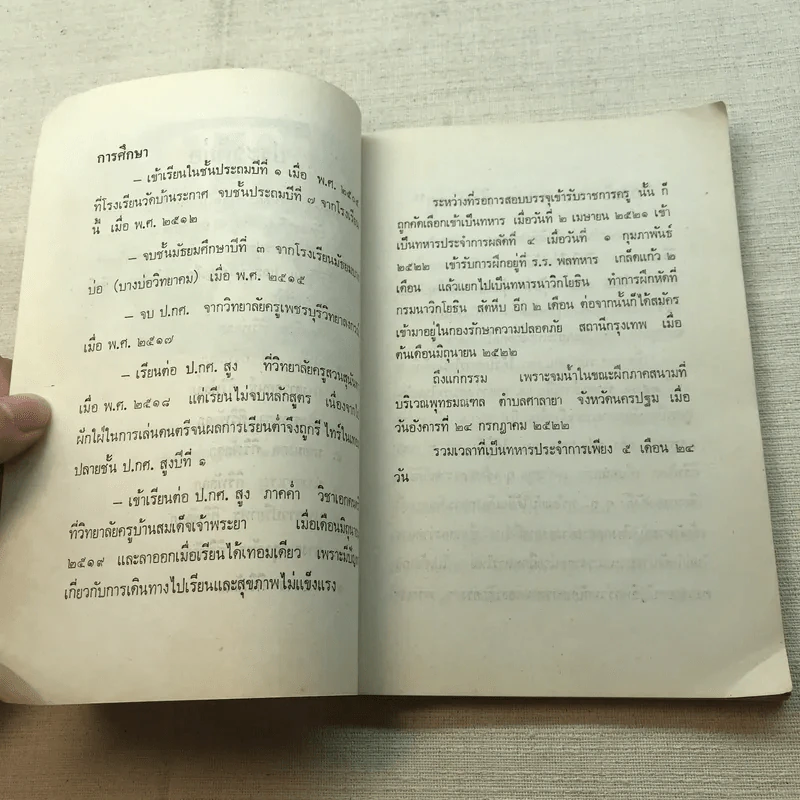 การศึกษา
– เข้าเรียนในชั้นประถมปีที่ ๑ เมื่อ พ.ศ. ๒๕๐๕
ที่โรงเรียนวัดบ้านระกาศ จบชั้นประถมปีที่ ๗ จากโรงเรียน
นี้ เมื่อ พ.ศ. ๒๕๑๒
– จบชั้นมัธยมศึกษาปีที่ ๓ จากโรงเรียนมัธยม
บ่อ (บางบ่อวิทยาคม) เมื่อ พ.ศ. ๒๕๑๕
– จบ ป.กศ. จากวิทยาลัยครูเพชรบุรีวิทยาลงกรณ์
เมื่อ พ.ศ. ๒๕๑๗
– เรียนต่อ ป.กศ. สูง ที่วิทยาลัยครูสวนสุนันทา
เมื่อ พ.ศ. ๒๕๑๘ แต่เรียนไม่จบหลักสูตร เนื่องจาก
ฝักใฝ่ในการเล่นดนตรีจนผลการเรียนต่ำจึงถูกรีไทร์ใน
ปลายชั้น ป.กศ. สูงปีที่ ๑
– เข้าเรียนต่อ ป.กศ. สูง ภาคค่ำ วิชาเอก
ที่วิทยาลัยครูบ้านสมเด็จเจ้าพระยา เมื่อเดือนมิถุนายน
๒๕๑๙ และลาออกเมื่อเรียนได้เทอมเดียว เพราะมี
เกี่ยวกับการเดินทางไปเรียนและสุขภาพไม่แข็งแรง
ระหว่างที่รอการสอบบรรจุเข้ารับราชการครู นั้น ก็
ถูกคัดเลือกเข้าเป็นทหาร เมื่อวันที่ ๒ เมษายน ๒๕๒๑ เข้า
เป็นทหารประจำการผลัดที่ ๔ เมื่อวันที่ ๑ กุมภาพันธ์
๒๕๒๒ เข้ารับการฝึกอยู่ที่ ร.ร. พลทหาร เกล็ดแก้ว ๒
เดือน แล้วแยกไปเป็นทหารนาวิกโยธิน ทำการฝึกหัดที่
กรมนาวิกโยธิน สัตหีบ อีก ๒ เดือน ต่อจากนั้นก็ได้สมัคร
เข้ามาอยู่ในกองรักษาความปลอดภัย สถานีกรุงเทพ เมื่อ
ต้นเดือนมิถุนายน ๒๕๒๒
ถึงแก่กรรม เพราะจมน้ำในขณะฝึกภาคสนามที่
บริเวณพุทธมณฑล ตำบลศาลายา จังหวัดนครปฐม เมื่อ
วันอังคารที่ ๒๔ กรกฎาคม ๒๕๒๒
รวมเวลาที่เป็นทหารประจำการเพียง ๕ เดือน ๒๔
วัน